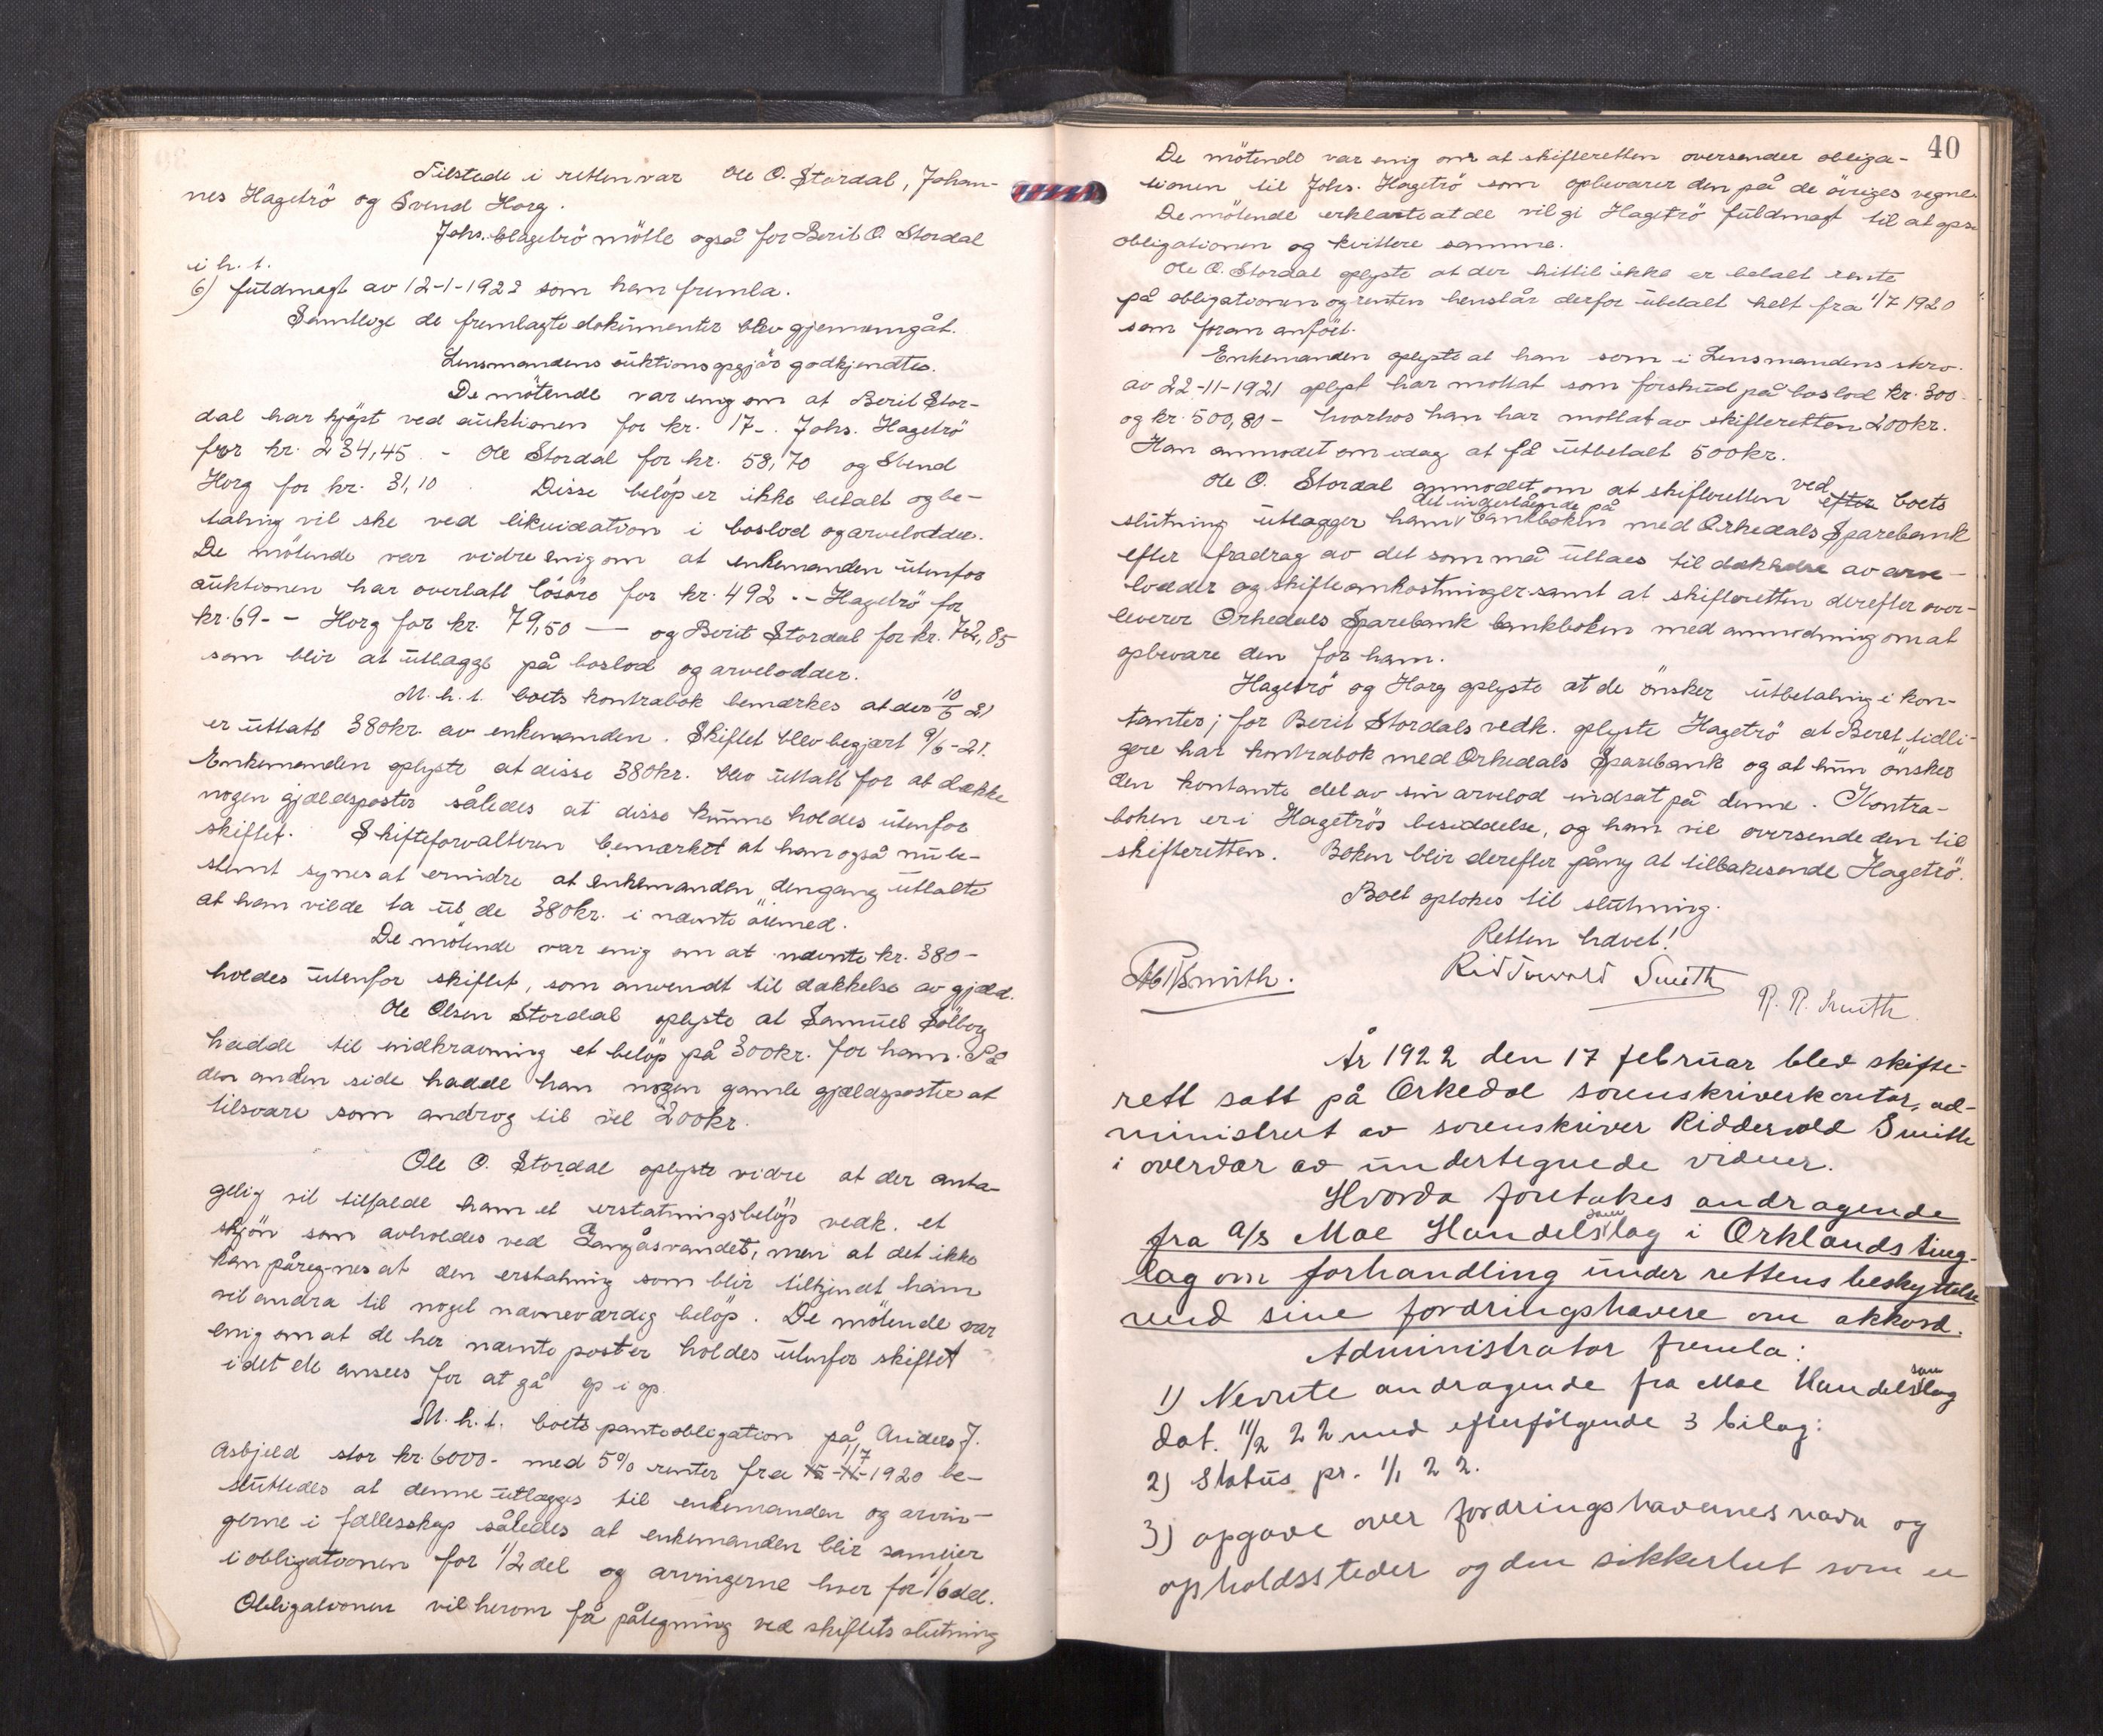 Tilstede i retten var Ole O. Stordal, Johan-
nes Hagetrö og Svend Horg.
Johs. Hagetrö mötte også for Berit O. Stordal
i h. t.
6) fuldmagt av 12-1-1922 som han fremla.
Samtlige de fremlagte dokumenter blev gjennemgåt.
Lensmandens auktionsopgjör godkjendtes.
De mötende var enig om at Berit Stor-
dal har kjöpt ved auktionen for kr. 17-. Johs. Hagetrö
for kr. 234,45 - Ole Stordal for kr. 58,70 og Svend
Horg for kr. 31,10. Disse belöp er ikke betalt og be-
taling vil ske ved likvidation i boslod og arvelodder.
De mötende var vidre enig om at enkemanden utenfor
auktionen har overtatt lösöre for kr. 492 - - Hagetrö for
kr. 69 - - Horg for kr. 79,50 — og Berit Stordal for kr. 72,85
som blir at utlægge på boslod og arvelodder.
M. h. t. boets kontrabok bemærkes at der 10/6 21
er uttatt 380kr. av enkemanden. Skiftet blev begjært 9/6-21.
Enkemanden oplyste at disse 380kr. blev uttatt for at dække
nogen gjældsposter således at disse kunne holdes utenfor
skiftet. Skifteforvalteren bemærket at han også nu be-
stemt synes at erindre at enkemanden dengang uttalte
at han vilde ta ut de 380kr. i nævnte öiemed.
De mötende var enig om at nævnte kr. 380 -
holdes utenfor skiftet, som anvendt til dækkelse av gjæld.
Ole Olsen Stordal oplyste at Samuel Solberg
hadde til indkrævning et belöp på 300kr. for ham. På
den anden side hadde han nogen gamle gjældsposter at
tilsvare som androg til vel 200kr.
Ole O. Stordal oplyste vidre at der anta-
gelig vil tilfalde ham et erstatningsbelöp vedk. et
skjön som avholdes ved Langåsvandet, men at det ikke
kan påregnes at den erstatning som blir tilkjendt ham
vil andra til noget nævneværdig belöp. De mötende var
enig om at de her nævnte poster holdes utenfor skiftet
i det de ansees for at gå op i op.
M. h. t. boets panteobligation på Anders J.
Asbjeld stor kr. 6000.- med 5% renter fra 1/7 1920 be-
sluttedes at denne utlægges til enkemanden og arvin-
gerne i fællesskap således at enkemanden blir sameier
i obligationen for 1/2 del og arvingerne hver for 1/6 del.
Obligationen vil herom få påtegning ved skiftets slutning
40
De mötende var enig om at skifteretten oversender obliga-
tionen til Johs. Hagetrö som opbevarer den på de övriges vegne.
De mötende erklærte at de vil gi Hagetrö fuldmagt til at opsi
obligationen og kvittere samme.
Ole O. Stordal oplyste at der hittil ikke er betalt rente
på obligationen og renten henstår derfor ubetalt helt fra 1/7 1920
som foran anfört.
Enkemanden oplyste at han som i Lensmandens skr.
av 22-11-1921 oplyst har mottat som forskud på boslod kr. 300
og kr. 500,80 - hvorhos han har mottat av skifteretten 200kr.
Han anmodet om idag at få utbetalt 500kr.
Ole O. Stordal anmodet om at skifteretten ved efter boets
det indestående på
slutning utlægger ham bankboken med Orkedals Sparebank
efter fradrag av det som må uttaes til dækkelse av arve-
lodder og skifteomkostninger samt at skifteretten derefter over-
leverer Orkedals Sparebank bankboken med anmodning om at
opbevare den for ham.
Hagetrö og Horg oplyste at de önsker utbetaling i kon-
tanter; for Berit Stordals vedk. oplyste Hagetrö at Berit tidli-
gere har kontrabok med Orkedals Sparebank og at hun önsker
den kontante del av sin arvelod indsat på denne. Kontra-
boken er i Hagetrös besiddelse, og han vil oversende den til
skifteretten. Boken blir derefter påny at tilbakesende Hagetrö.
Boet optokes til slutning.
Retten hævet!
Ridderwold Smith
Smith.
R. R. Smith.
År 1922 den 17 februar blev skifte-
rett satt på Orkedal sorenskriverkontor, ad-
ministrert av sorenskriver Ridderwold Smith
i overvær av undertegnede vidner.
Hvorda foretokes andragende
fra A/S Moe Handelssamlag i Orklands ting-
lag om forhandling under rettens beskyttelse
med sine fordringshavere om akkord.
Administrator fremla:
1) Nevnte andragende fra Moe Handelssamlag
dat. 11/2 22 med efterfölgende 3 bilag:
2) Status pr. 1/1 22.
3) opgave over fordringshavernes navn og
opholdssteder og den sikkerhet som er